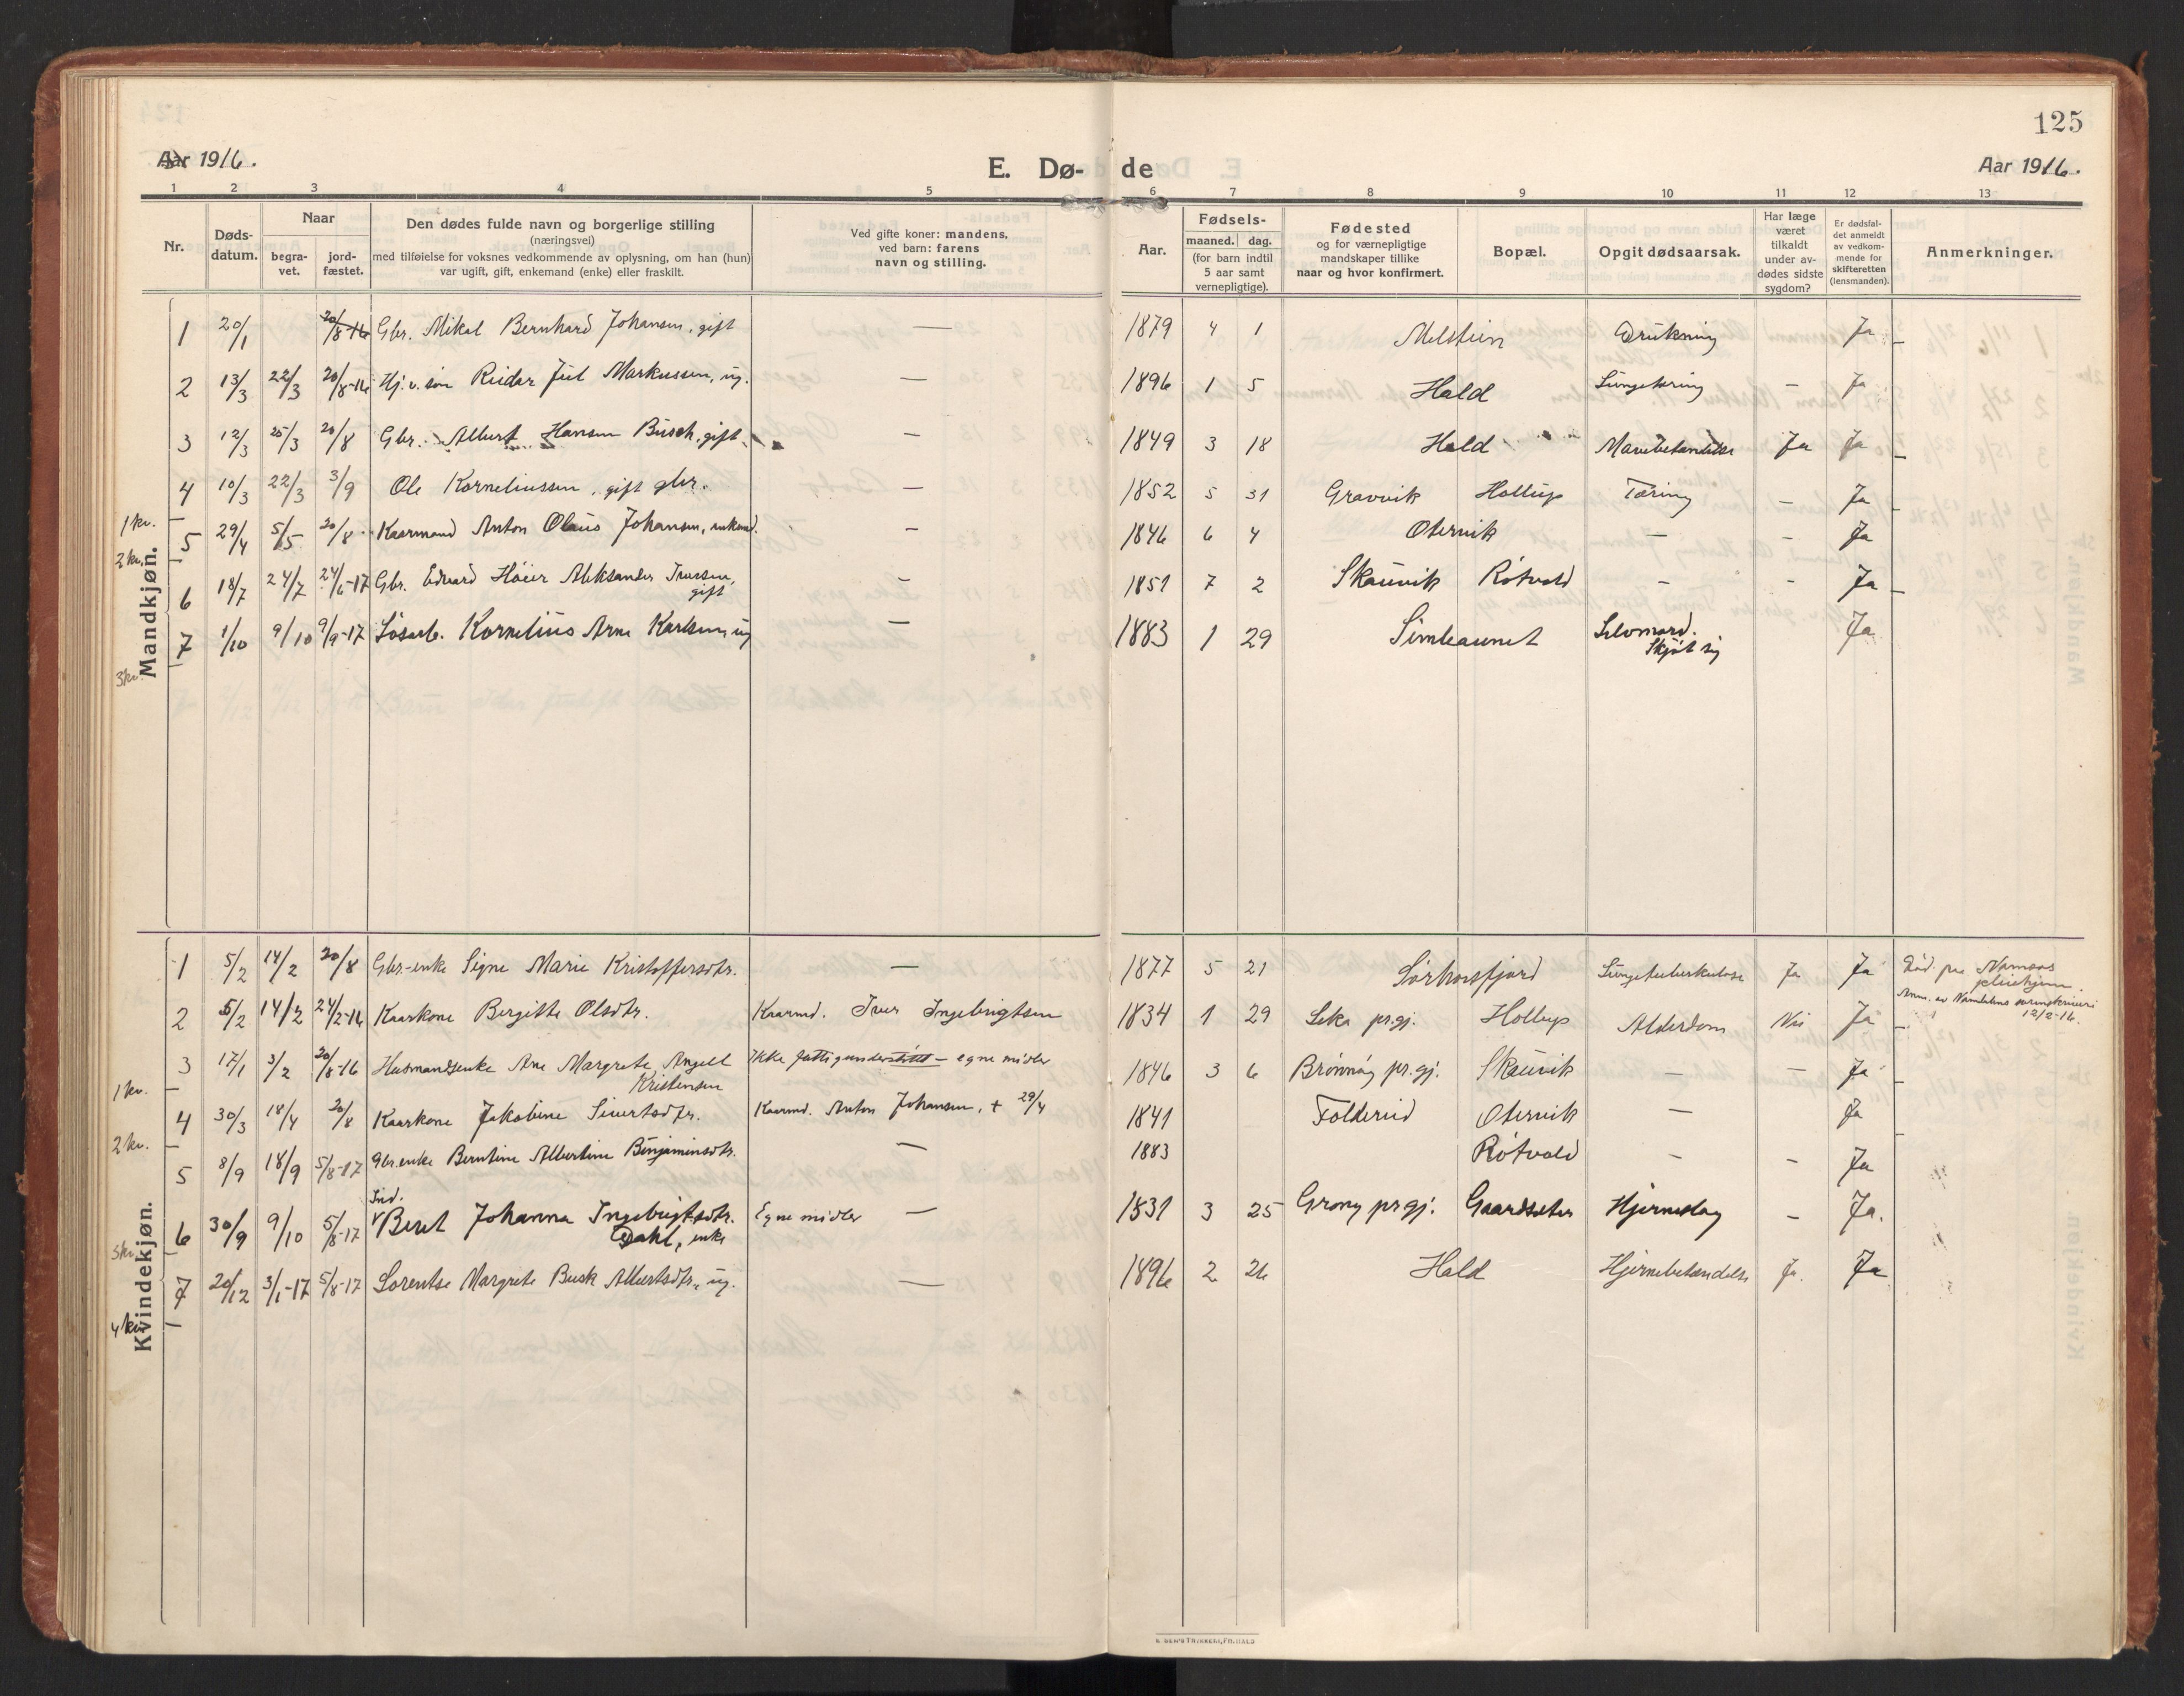 125
Aar 1916.
E. Dø-de
Aar 1916.
1 2 3 4 5 6 7 8 9 10 11 12 13
Nr.
Døds-datum.
Naar
begra-vet.
jord-fæstet.
Den dødes fulde navn og borgerlige stilling
(næringsvei)
med tilføielse for voksnes vedkommende av oplysning, om han (hun)
var ugift, gift, enkemand (enke) eller fraskilt.
Ved gifte koner: mandens,
ved barn: farens
navn og stilling.
Aar.
Fødsels-
maaned. dag.
(for barn indtil
5 aar samt
vernepligtige).
Fødested
og for værnepligtige
mandskaper tillike
naar og hvor konfirmert.
Bopæl.
Opgit dødsaarsak.
Har læge
været
tilkaldt
under av-
dødes sidste
sygdom?
Er dødsfal-
det anmeldt
av vedkom-
mende for
skifteretten
(lensmanden).
Anmerkninger.
Mandkjøn.
1 20/1 20/8-16 Gbr. Mikal Bernhard Johansen, gift — 1879 4 1 Melstein Drukning Ja
2 13/3 22/3 20/8-16 Hj.v. søn Reidar Juul Markussen, ug. — 1896 1 5 Hald Lungetæring — Ja
3 12/3 25/3 20/8 Gbr. Albert Hansen Busch, gift. — 1849 3 18 Hald Mavebetændelse Ja Ja
4 10/3 22/3 3/9 Ole Korneliussen, gift gbr. — 1852 5 31 Gravvik Hollup Tæring — Ja
1 kv.
5 29/4 5/5 20/8 Kaarmand Anton Olaus Johansen, enkemd. — 1846 6 4 Otervik — — Ja
2 kv.
6 18/7 24/7 24/6-17 Gbr. Edvard Høier Aleksander Iversen,
gift — 1851 7 2 Skauvik Røtvold — — Ja
7 1/10 9/10 9/9-17 Løsarb. Kornelius Arne Karlsen, ug — 1883 1 29 Simleaunet Selvmord.
Skjøt sig Ja
3 kv.
Kvindekjøn.
1 5/2 14/2 20/8 Gbr-enke Signe Marie Kristoffersdtr. — 1877 5 21 Sørhorsfjord Lungetuberkulose Ja Ja Død paa Namsos
pleiehjem.
2 5/2 14/2 24/2-16 Kaarkone Bergitte Olsdtr. Kaarmd. Iver Ingebrigtsen 1834 1 29 Leka pr.gj. Hollup Alderdom Nei Ja Anm. av Namdalens sorenskriveri
12/2-16.
3 17/1 3/2 20/8-16 Husmandsenke Ane Margrete Angell
Kristensen Ikke fattigunderstøttet — egne midler 1846 3 6 Brønnøy pr.gj. Skauvik — — Ja
1 kv.
4 30/3 18/4 20/8 Kaarkone Jakobine Sivertsdtr. Kaarmd. Anton Johansen, + 29/4 1841 Foldereid Otervik — Ja
2 kv.
5 8/9 18/9 5/8-17 Gbr.enke Berntine Albertine Benjaminsdtr. — 1883 Røtvold — — Ja
6 30/9 9/10 5/8-17 Ind.
Beret Johanna Ingebrigtsdtr.
Dahl, enke Egne midler — 1831 3 25 Grong pr.gj. Gaardseter Hjerneslag — Ja.
3 kv.
7 20/12 3/1-17 5/8-17 Lorentse Margrete Busk Albertsdtr., ug. — 1896 2 26 Hald Hjernebetændelse Ja. Ja
4 kv.